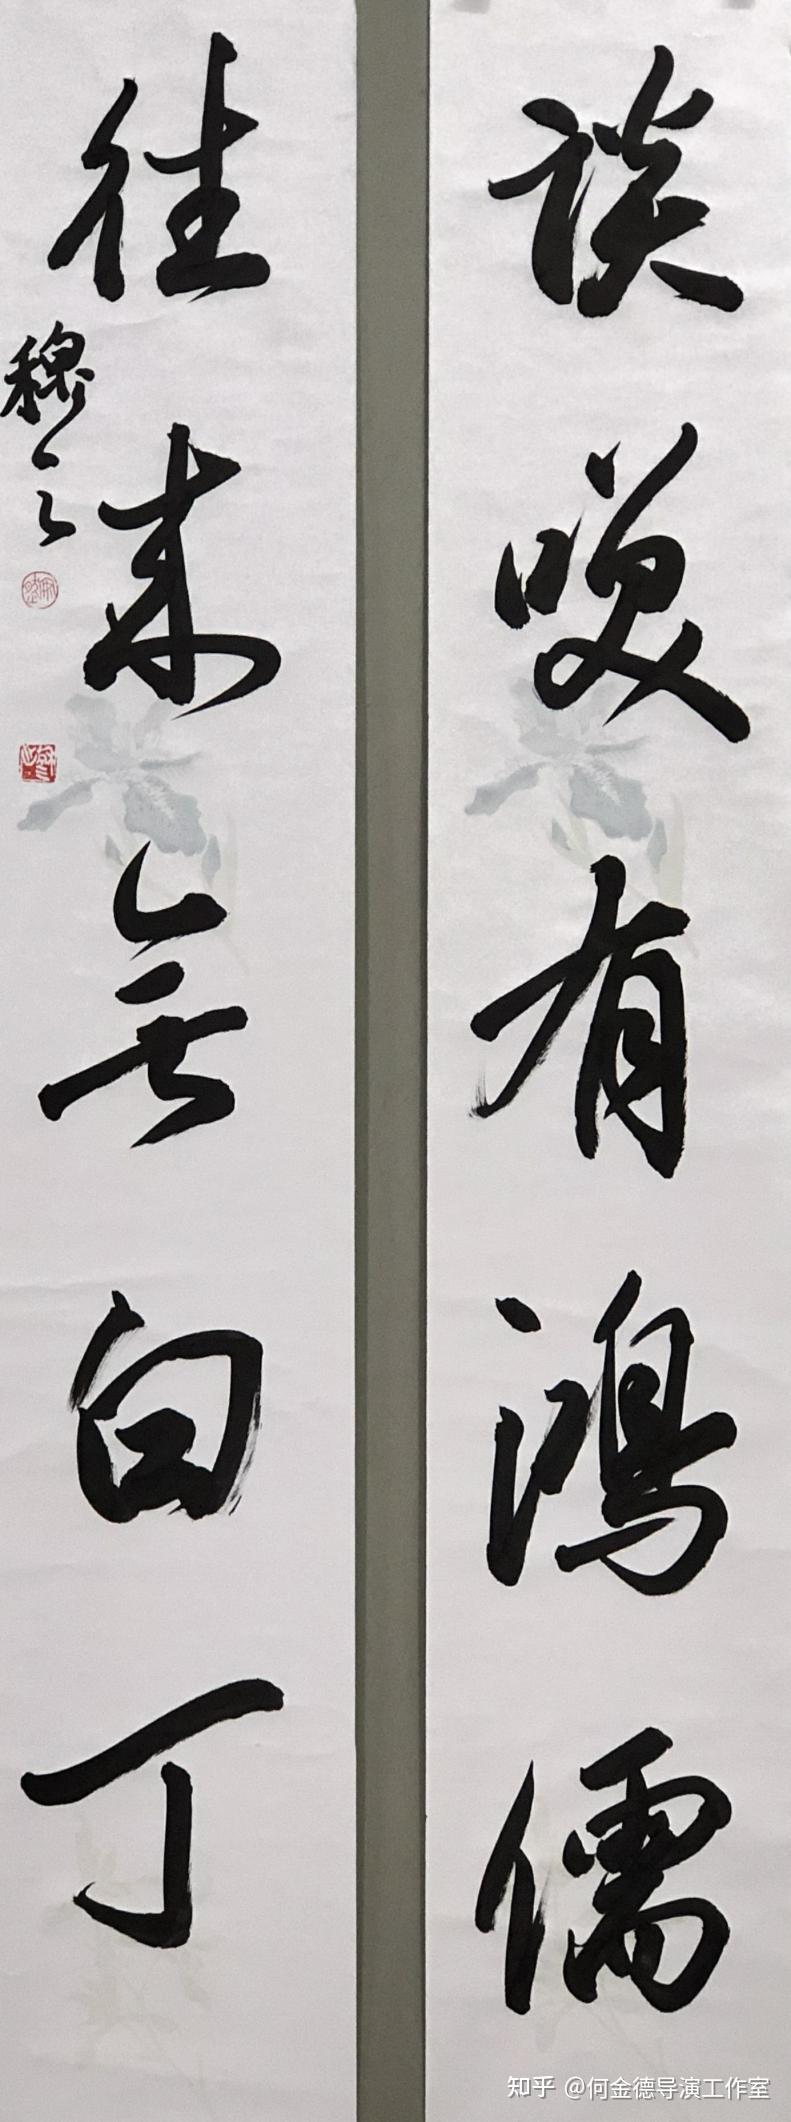 谈咲有鸿儒
往来无白丁
穆
知乎 @何金德导演工作室